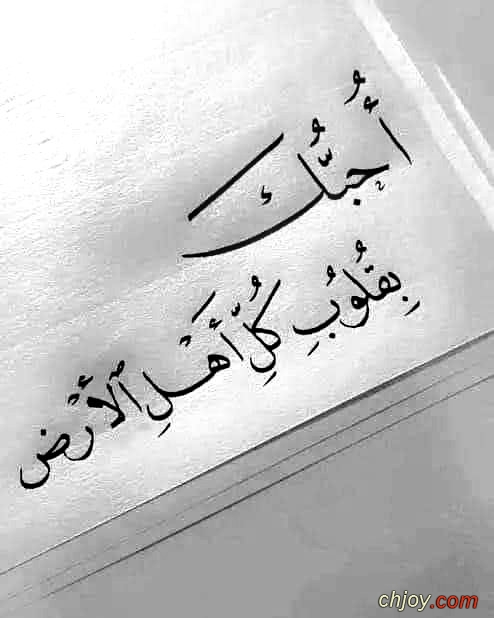 أُحِبُّك
بِقُلُوبِ كُلِّ أَهْلِ ٱلأَرْض
chjoy.com